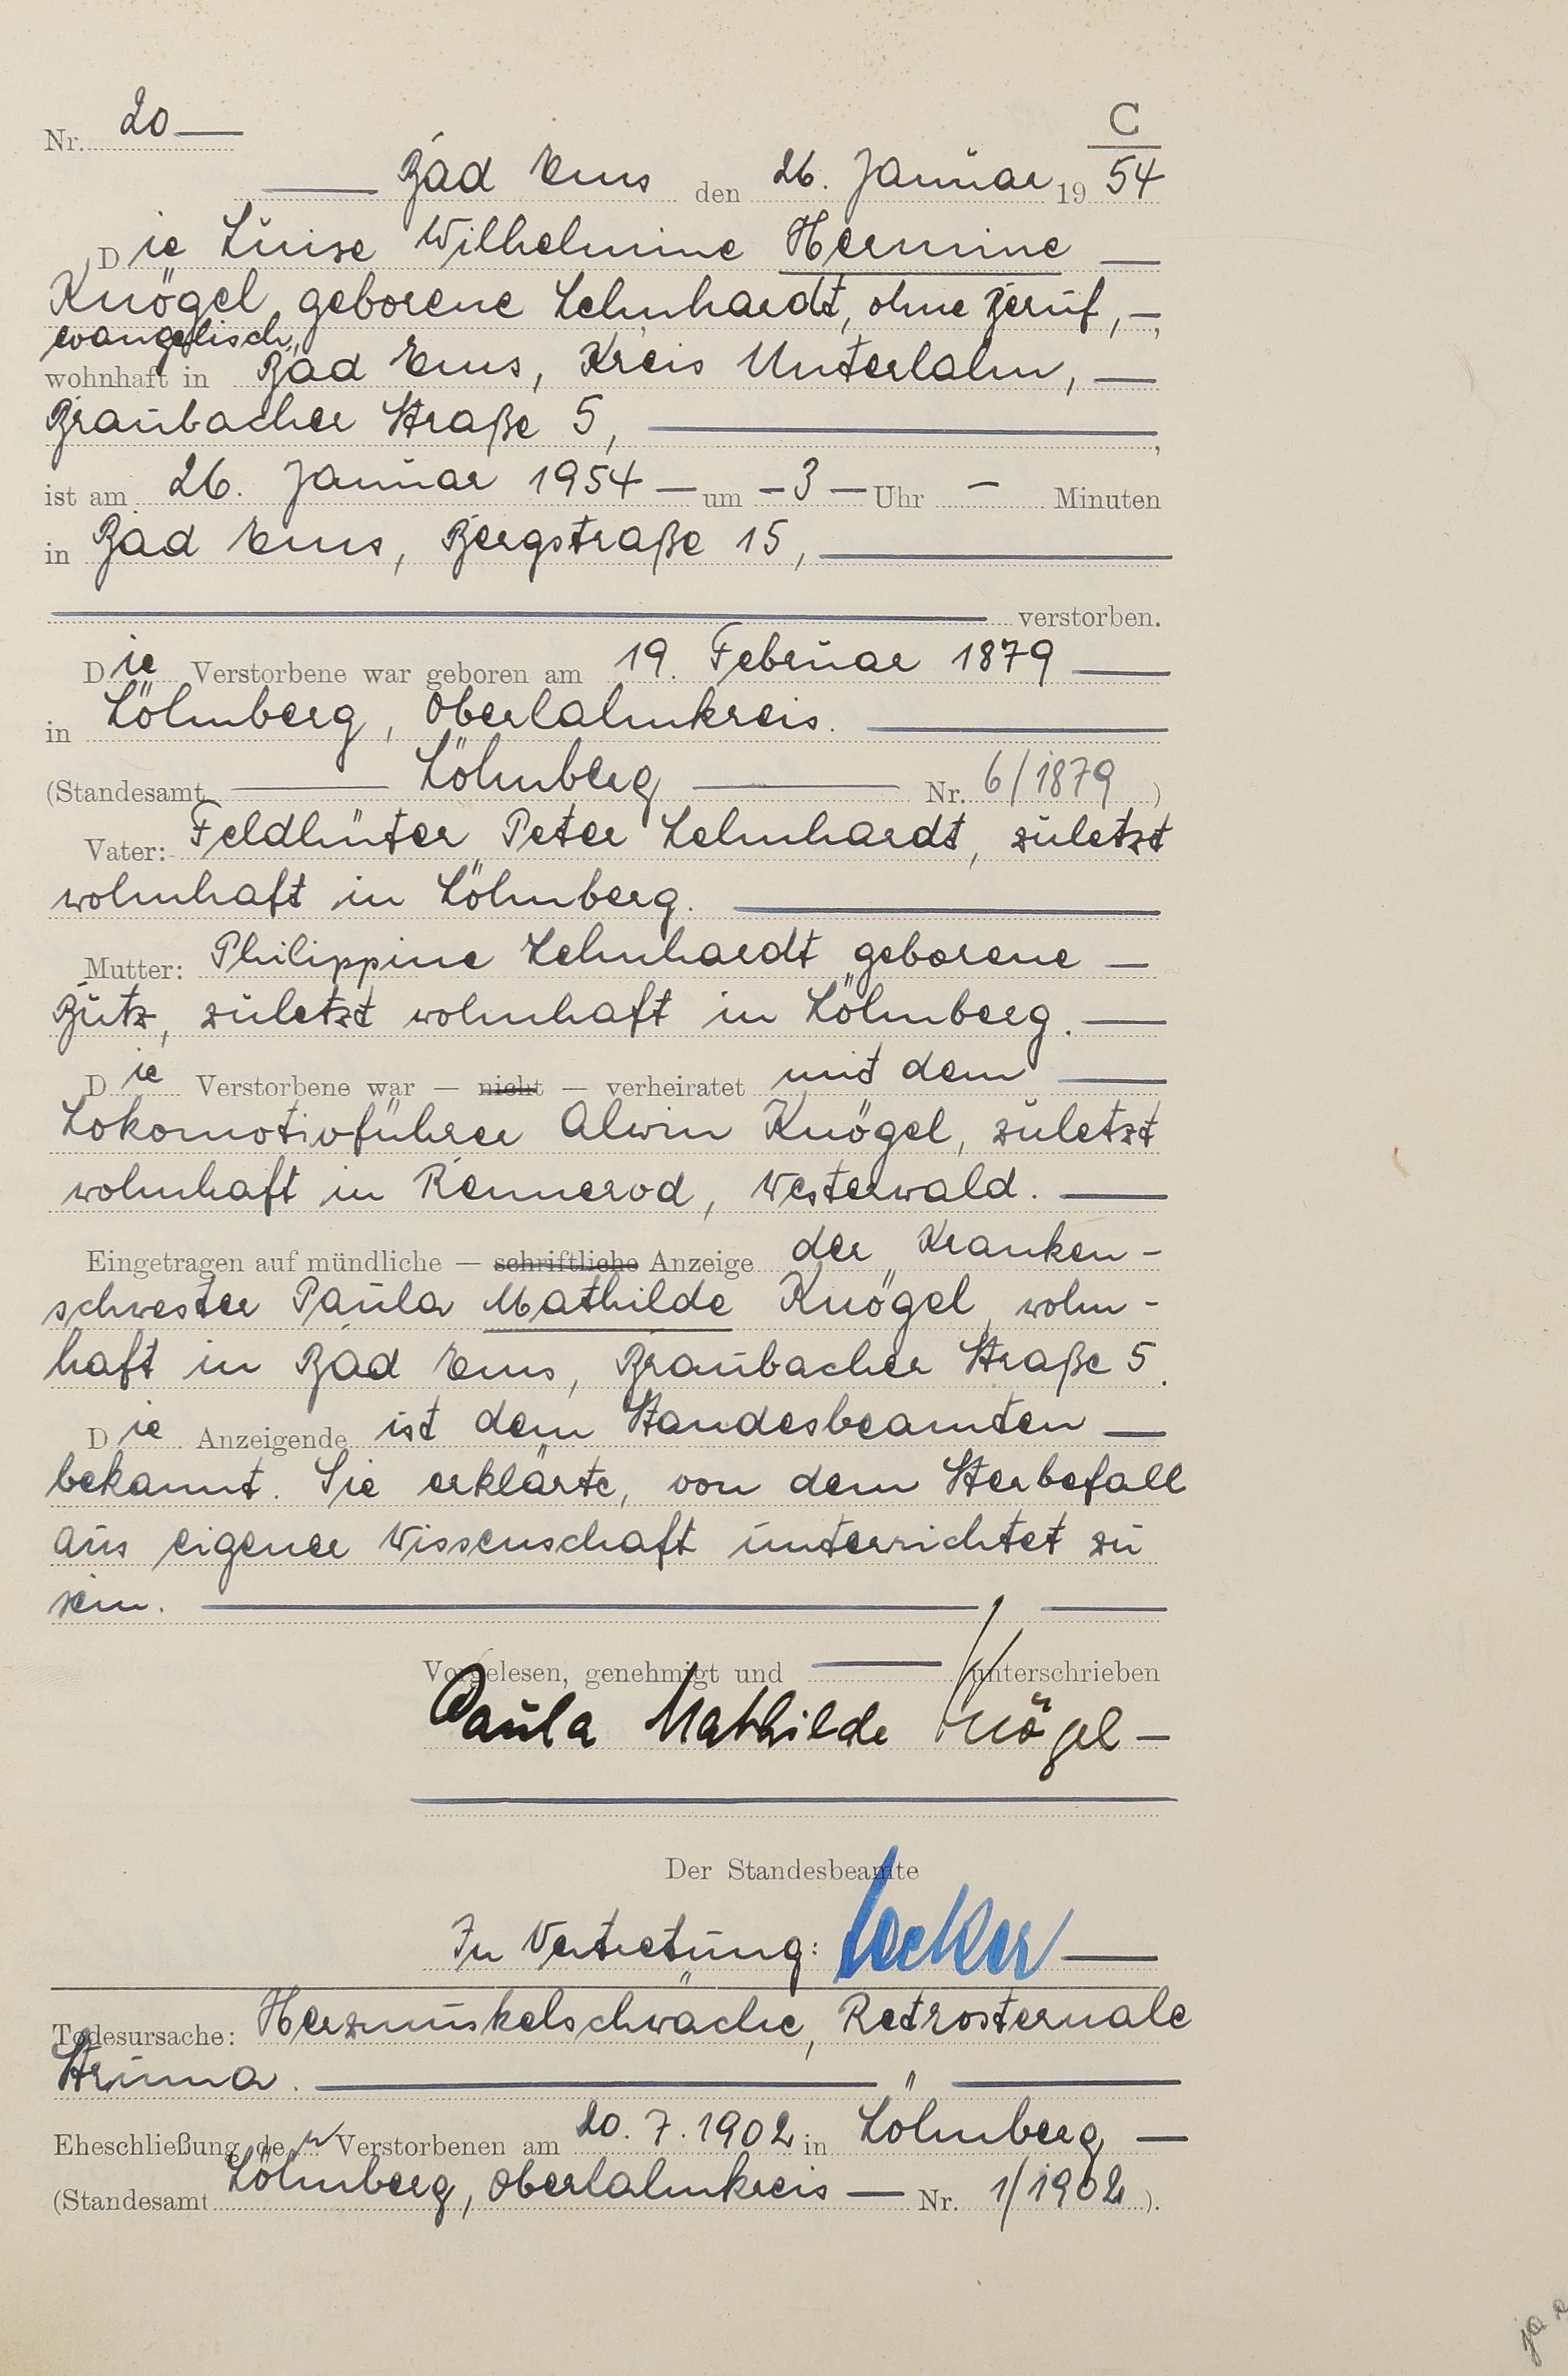 C
Nr. 20 —
— Bad Ems den 26. Januar 19 54
Die Luise Wilhelmine Hermine —
Knögel geborene Lehnhardt, ohne Beruf, —,
evangelisch,
wohnhaft in Bad Ems, Kreis Unterlahn, —
Braubacher Straße 5, —,
ist am 26. Januar 1954 — um — 3 — Uhr — Minuten
in Bad Ems, Bergstraße 15, —
— verstorben.
Die Verstorbene war geboren am 19. Februar 1879 —
in Löhnberg, Oberlahnkreis. —
(Standesamt — Löhnberg — Nr. 6/1879 )
Vater: Feldhüter Peter Lehnhardt, zuletzt
wohnhaft in Löhnberg. —
Mutter: Philippine Lehnhardt geborene —
Butz, zuletzt wohnhaft in Löhnberg. —
Die Verstorbene war — nicht — verheiratet mit dem —
Lokomotivführer Alwin Knögel, zuletzt
wohnhaft in Rennerod, Westerwald. —
Eingetragen auf mündliche — schriftliche Anzeige der Kranken-
schwester Paula Mathilde Knögel, wohn-
haft in Bad Ems, Braubacher Straße 5.
Die Anzeigende ist dem Standesbeamten —
bekannt. Sie erklärte, von dem Sterbefall
aus eigener Wissenschaft unterrichtet zu
sein. —
Vorgelesen, genehmigt und — unterschrieben
Paula Mathilde Knögel —
Der Standesbeamte
In Vertretung: —
Todesursache: Herzmuskelschwäche, Retrosternale
Struma. —
Eheschließung der Verstorbenen am 20.7.1902 in Löhnberg —
(Standesamt Löhnberg, Oberlahnkreis — Nr. 1/1902 ).